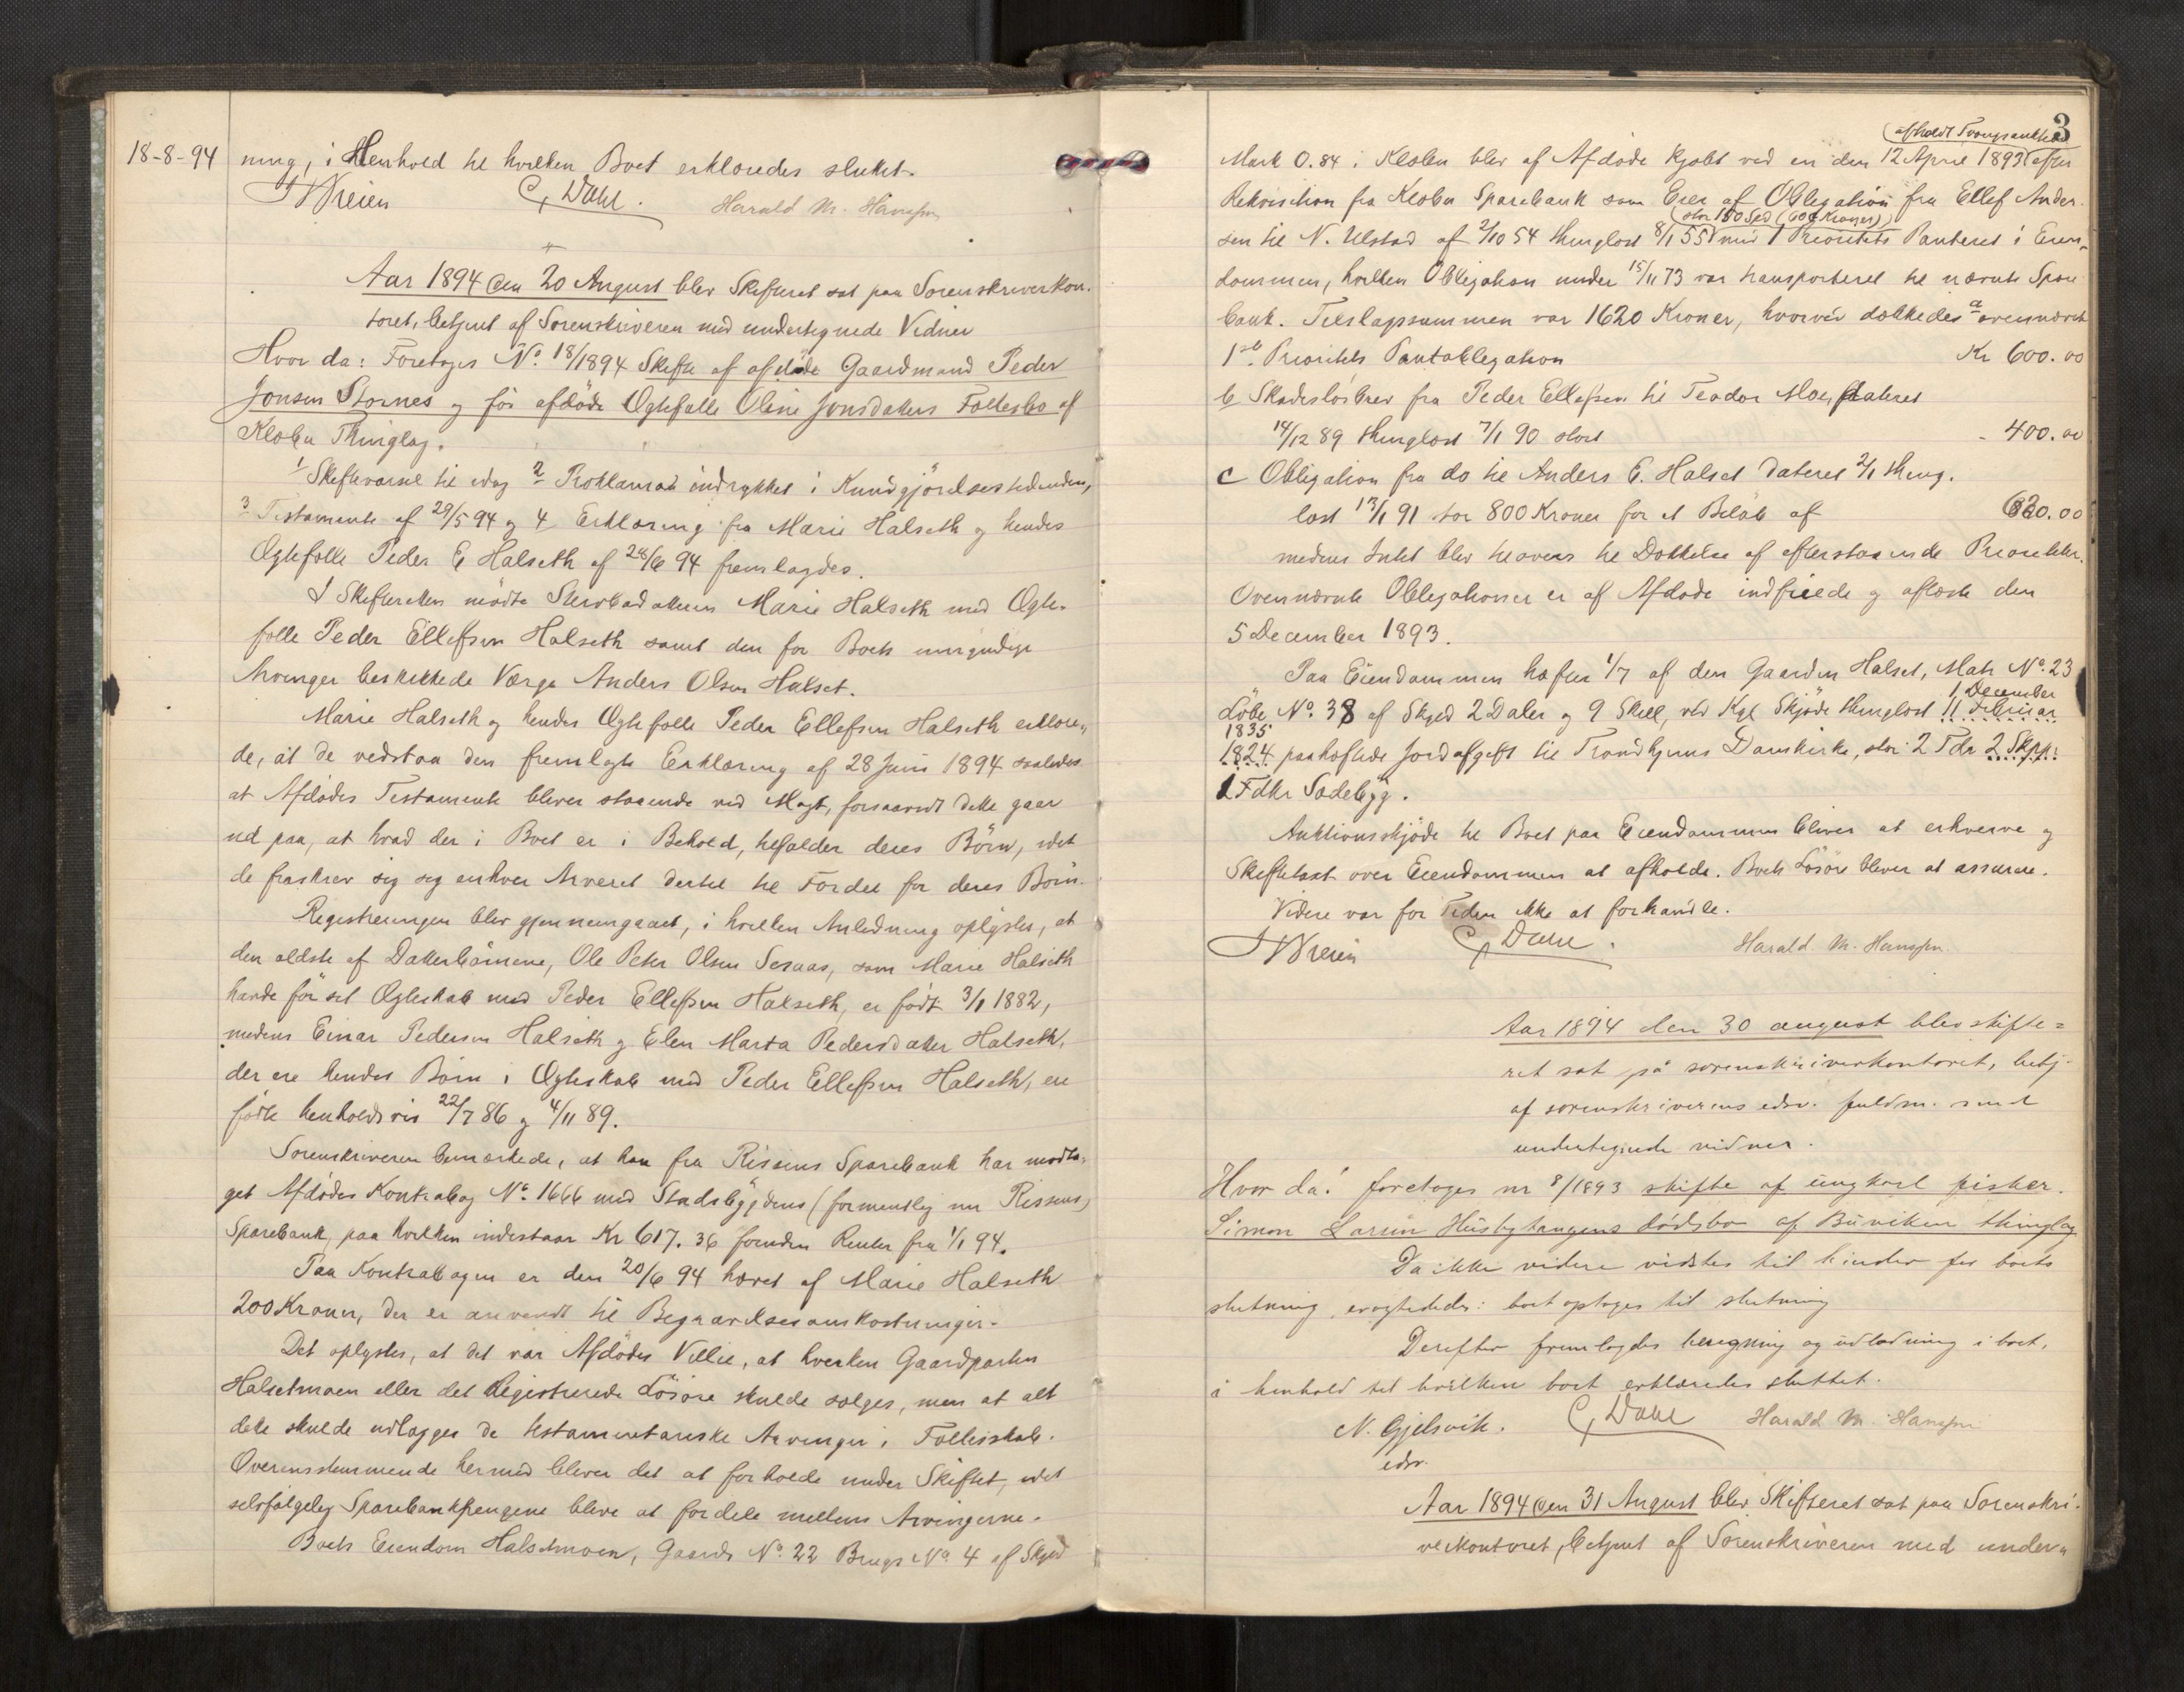 18-8-94 ning, i Henhold til hvilken Boet erklæredes sluttet.
C. Dahl. Harald M. Hansen
Aar 1894 den 20 August blev Skifteret sat paa Sorenskriverkon-
toret, betjent af Sorenskriveren med undertegnede Vidner
Hvor da: Foretoges No. 18/1894 Skifte af afdøde Gaardmand Peder
Jonsen Stornes og før afdøde Ægtefælle Oline Jonsdatters Fællesbo af
Klæbu Thinglag.
1 Skiftevarsel til idag 2 Proklamaet indrykket i Kundgjørelsestidenden,
3 Testamente af 29/5 94 og 4 Erklæring fra Marie Halseth og hendes
Ægtefælle Peder E Halseth af 28/6 94 fremlagdes.
I Skifteretten mødte Marie Halseth med Ægte-
fælle Peder Ellefsen Halseth samt den for Boets umyndige
Arvinger beskikkede Værge Anders Olsen Halset.
Marie Halseth og hendes Ægtefælle Peder Ellefsen Halseth erklære-
de, at de vedstaa den fremlagte Erklæring af 28 Juni 1894 saaledes
at Afdødes Testamente bliver staaende ved Magt, forsaavidt dette gaar
ud paa, at hvad der i Boet er i Behold, tilfalder deres Børn, idet
de fraskrev sig sig enhver Arveret dertil til Fordel for deres Børn.
Registreringen blev gjennemgaaet, i hvilken Anledning oplystes, at
den ældste af Datterbørnene, Ole Peter Olsen Sesaas, som Marie Halseth
havde før sit Ægteskab med Peder Ellefsen Halseth, er født 3/1 1882,
medens Einar Pedersen Halseth og Elen Marta Pedersdatter Halseth,
der ere hendes Børn i Ægteskab med Peder Ellefsen Halseth, ere
fødte henholdsvis 22/7 86 og 4/11 89.
Sorenskriveren bemærkede, at han fra Rissens Sparebank har modta-
get Afdødes Kontrabog No. 1666 med Stadsbygdens (formentlig nu Rissens)
Sparebank, paa hvilken indestaar Kr 617. 36 foruden Renter fra 1/1 94.
Paa Kontrabogen er den 20/6 94 hævet af Marie Halseth
200 Kroner, der er anvendt til Begravelsesomkostninger.
Det oplystes, at det var Afdødes Villie, at hverken Gaardparten
Halsetmoen eller det Registrerede Løsøre skulde sælges, men at alt
dette skulde udlægges de testamentariske Arvinger i Fællesskab.
Overensstemmende hermed bliver det at forholde under Skiftet, idet
selvfølgelig Sparebankpengene blive at fordele mellem Arvingerne.
Boets Eiendom Halsetmoen, Gaards No. 22 Brugs No. 4 af Skyld
3
(afholdt Tvangsauktion
Mark 0.84 i Klæbu blev af Afdøde kjøbt ved en den 12 April 1893 efter
Rekvisition fra Klæbu Sparebank som Eier af Obligation fra Ellef Ander-
(stor 150 Spd (600 Kroner))
sen til N. Ulstad af 2/10 54 thinglæst 8/1 55 med 1 Prioritets Panteret i Eien-
dommen, hvilken Obligation under 15/11 73 var transporteret til nævnte Spare
bank. Tilslagssummen var 1620 Kroner, hvorved dækkedes a ovennævnte
1ste Prioritets Pantobligation Kr 600.00
b Skadesløsbrev fra Peder Ellefsen til Teodor Moe, dateret
14/12 89 thinglæst 7/1 90 stort - 400.00
c Obligation fra do til Anders E. Halset dateret 2/1 thing.
læst 13/1 91 stor 800 Kroner for et Beløb af 620.00
medens Intet blev tilovers til Dækkelse af efterstaaende Prioriteter.
Ovennævnte Obligationer er af Afdøde indfriede og aflæste den
5 December 1893.
Paa Eiendommen hæfter 1/7 af den Gaarden Halset, Matr No. 23
1 December
Løbe No. 38 af Skyld 2 Daler og 9 Skill, ved Kgl Skjøde thinglæst 11 Februar
1835
1824 paahæftede Jordafgift til Trondhjems Domkirke, stor: 2 Tdr 2 Skpp:
1 Fdkr Sædebyg.
Auktionsskjøde til Boet paa Eiendommen bliver at erhverve og
Skiftetaxt over Eiendommen at afholde. Boets Løsøre bliver at assurere.
Videre var for Tiden ikke at forhandle.
C. Dahl. Harald M. Hansen
Aar 1894 den 30 august blev skifte=
ret sat på sorenskriverkontoret, betj.
af sorenskriverens edsv. fuldm. med
undertegnede vidner.
Hvor da: foretoges nr 8/1893 skifte af ungkarl fisker.
Simon Larsen Husbytangens dødsbo af Buviken thinglag
Da ikke videre vidstes til hinder for boets
slutning, eragtedes: boet optages til slutning
Derefter fremlagdes beregning og udlodning i boet,
i henhold til hvilken boet erklæredes sluttet.
N. Gjelsvik. C. Dahl Harald M. Hansen
edsv.
Aar 1894 den 31 August blev Skifteret sat paa Sorenskri-
verkontoret, betjent af Sorenskriveren med under-